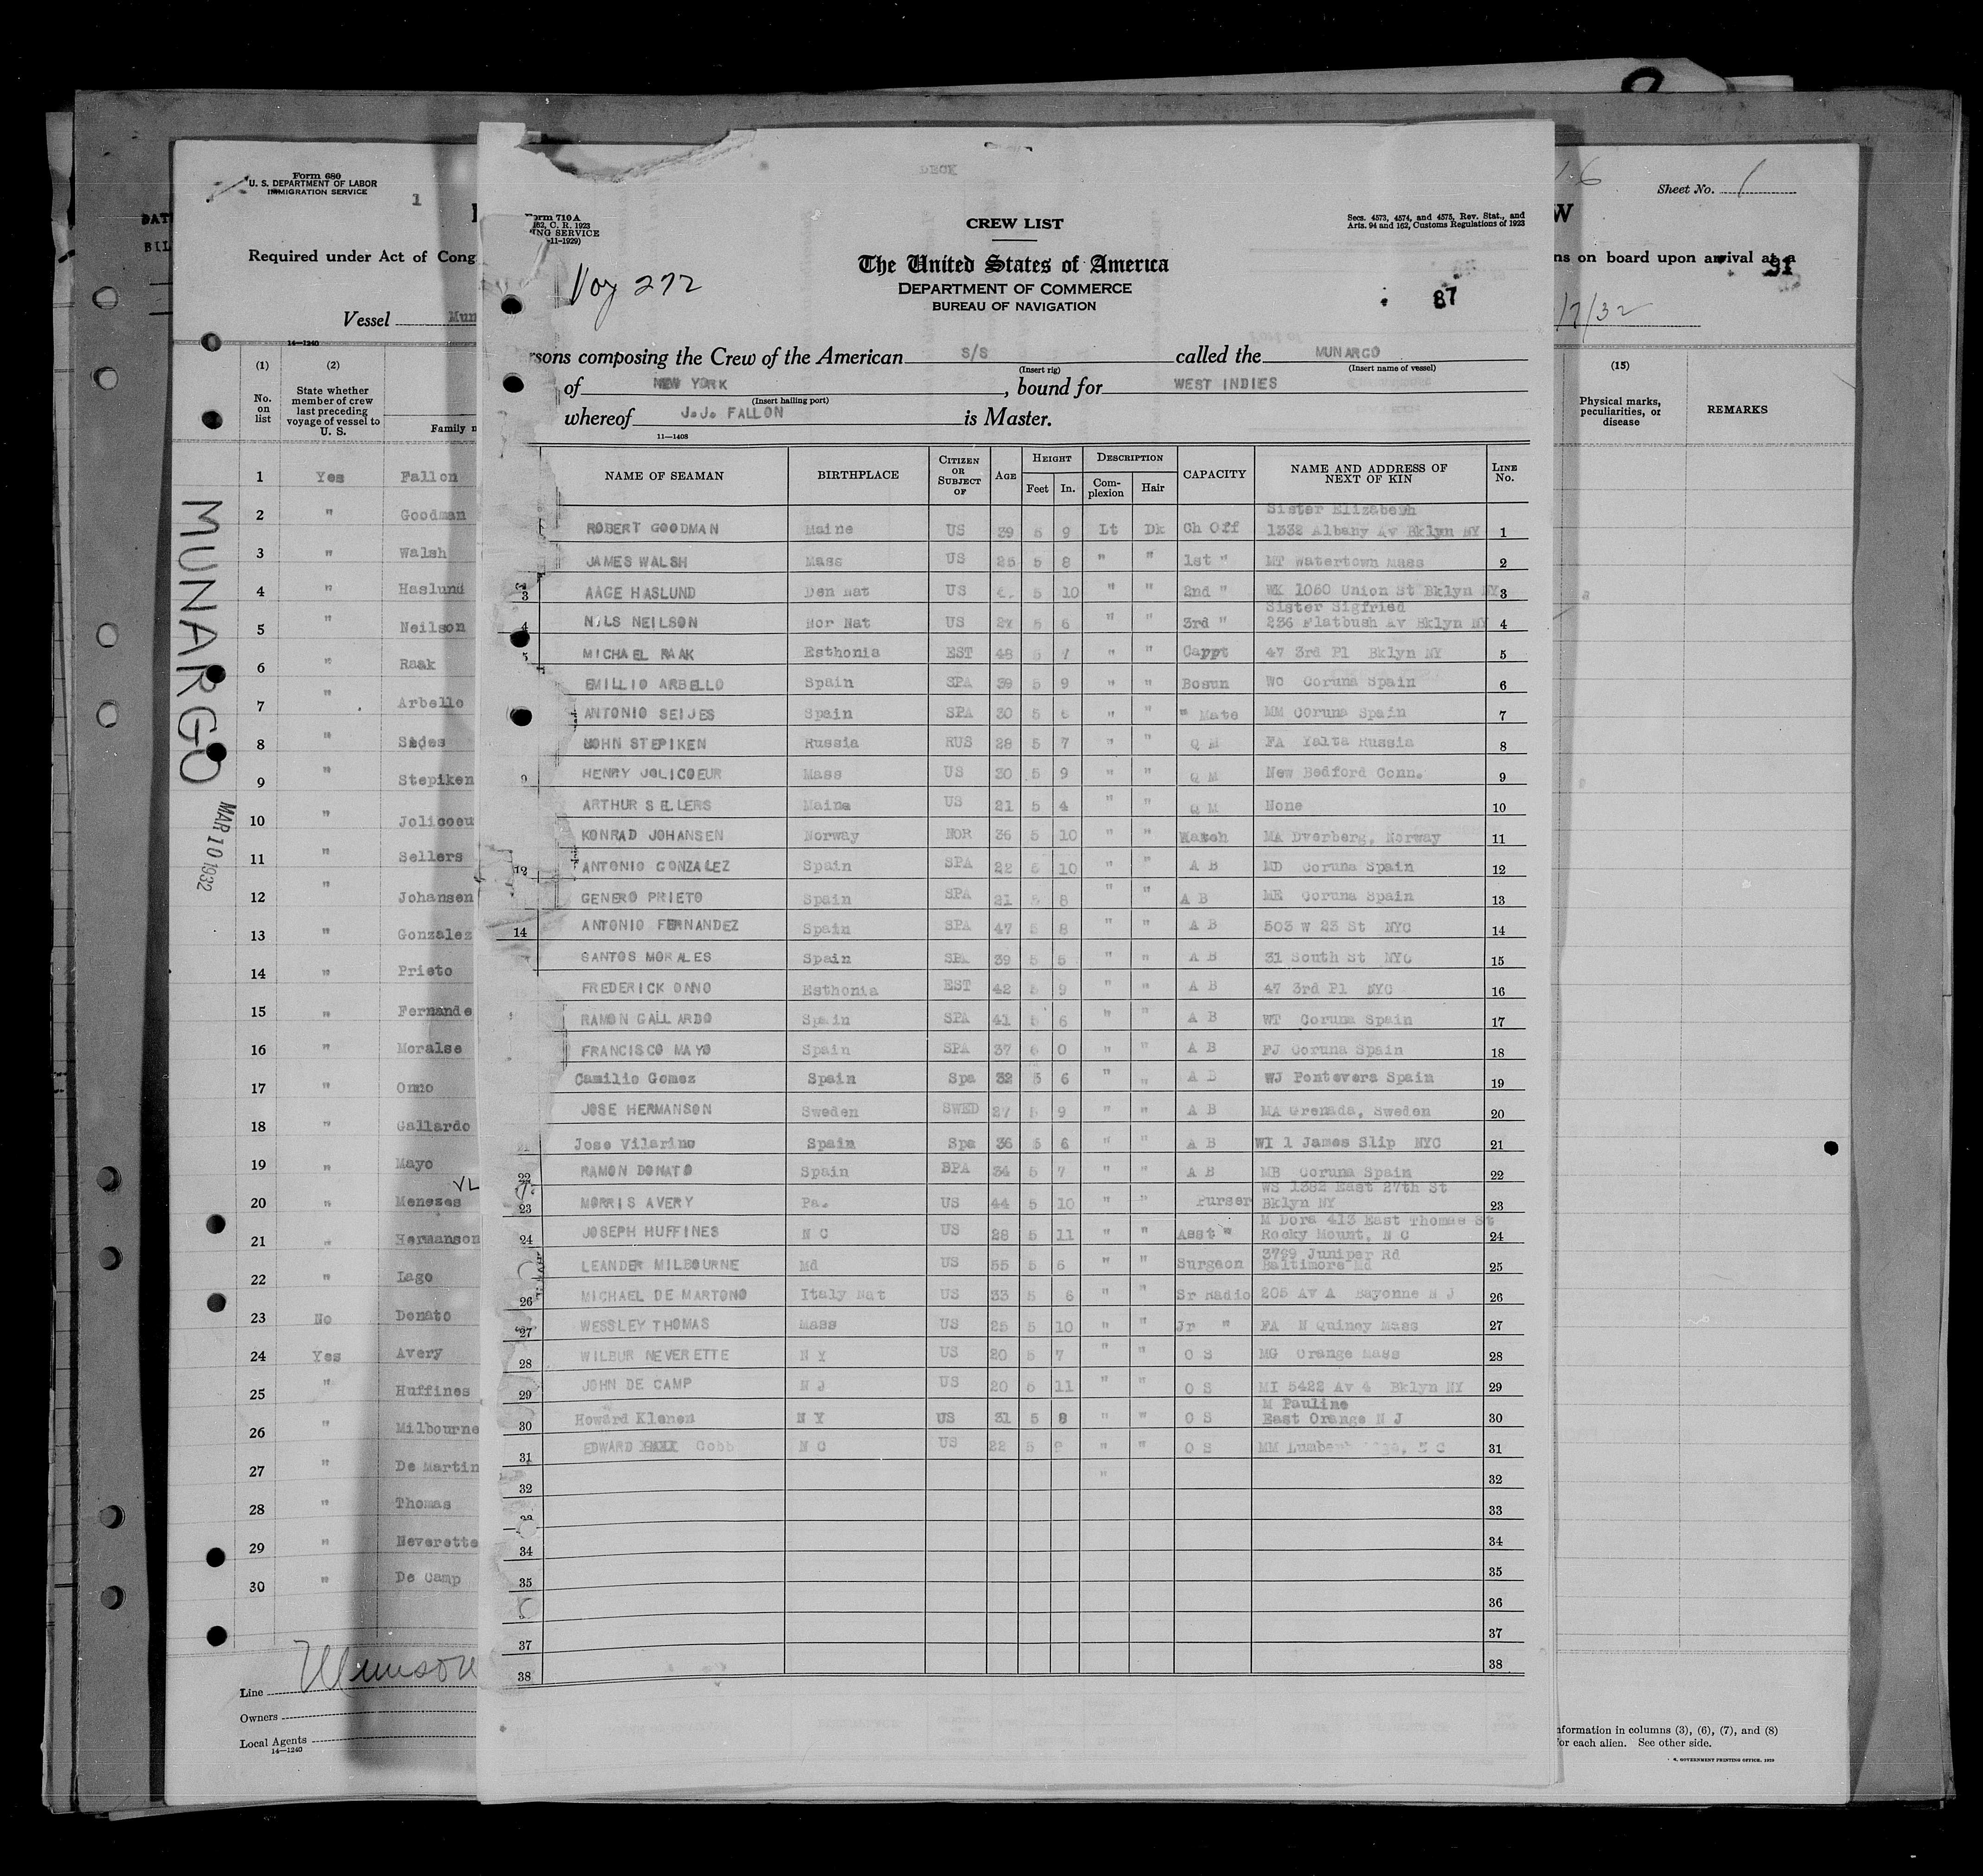 Form 680
U. S. DEPARTMENT OF LABOR
IMMIGRATION SERVICE
1
Required under Act of Cong
Vessel Mun
14—1240
(1) (2)
No. on list
State whether member of crew last preceding voyage of vessel to U. S.
Family n
1 Yes Fallon
2 " Goodman
3 " Walsh
4 " Haslund
5 " Neilson
6 " Raak
7 " Arbello
8 "
9 " Stepiken
10 " Jolicoeu
11 " Sellers
12 " Johansen
13 " Gonzalez
14 " Prieto
15 " Fernande
16 " Moralse
17 " Onno
18 " Gallardo
19 " Mayo
20 " Menezes
21 " Hermanson
22 " Lago
23 No Donato
24 Yes Avery
25 " Huffines
26 " Milbourne
27 " De Martin
28 " Thomas
29 " Neverette
30 " De Camp
MUNARGO
MAR 10 1932
Line Munson
Owners
Local Agents
14—1240
DECK
orm 710 A
162, C. R. 1923
ING SERVICE
-11-1929)
CREW LIST
Secs. 4573, 4574, and 4575, Rev. Stat., and
Arts. 94 and 162, Customs Regulations of 1923
Voy 272
The United States of America
DEPARTMENT OF COMMERCE
BUREAU OF NAVIGATION
87
rsons composing the Crew of the American S/S called the MUNARGO
(Insert rig) (Insert name of vessel)
of NEW YORK, bound for WEST INDIES
(Insert hailing port)
whereof J.J. FALLON is Master.
11—1408
NAME OF SEAMAN BIRTHPLACE CITIZEN OR SUBJECT OF AGE HEIGHT Feet In. DESCRIPTION Complexion Hair CAPACITY NAME AND ADDRESS OF NEXT OF KIN LINE No.
Sister Elizabeth
ROBERT GOODMAN Maine US 39 5 9 Lt Dk Ch Off 1332 Albany Av Bklyn NY 1
JAMES WALSH Mass US 25 5 8 " " 1st " MT Watertown Mass 2
3 AAGE HASLUND Den Nat US 5 10 " " 2nd " WK 1060 Union St Bklyn NY 3
Sister Sigfried
4 NILS NEILSON Nor Nat US 5 6 " " 3rd " 236 Flatbush Av Bklyn NY 4
5 MICHAEL RAAK Esthonia EST 48 5 7 " " Cappt 47 3rd Pl Bklyn NY 5
EMILLIO ARBELLO Spain SPA 39 5 9 " " Bosun WC Coruna Spain 6
ANTONIO SEIJES Spain SPA 30 5 6 " " " Mate MM Coruna Spain 7
JOHN STEPIKEN Russia RUS 28 5 7 " " Q M FA Yalta Russia 8
9 HENRY JOLICOEUR Mass US 30 5 9 " " Q M New Bedford Conn. 9
ARTHUR SELLERS Maine US 21 5 4 " " Q M None 10
KONRAD JOHANSEN Norway NOR 36 5 10 " " Watch MA Dverberg, Norway 11
12 ANTONIO GONZALEZ Spain SPA 22 5 10 " " A B MD Coruna Spain 12
GENERO PRIETO Spain SPA 21 5 8 " " A B ME Coruna Spain 13
14 ANTONIO FERNANDEZ Spain SPA 47 5 8 " " A B 503 W 23 St NYC 14
SANTOS MORALES Spain SPA 39 5 5 " " A B 31 South St NYC 15
FREDERICK ONNO Esthonia EST 42 5 9 " " A B 47 3rd Pl NYC 16
RAMON GALLARDO Spain SPA 41 5 6 " " A B WT Coruna Spain 17
FRANCISCO MAYO Spain SPA 37 6 0 " " A B FJ Coruna Spain 18
Camilio Gomez Spain Spa 32 5 6 " " A B WJ Pontevera Spain 19
JOSE HERMANSON Sweden SWED 27 5 9 " " A B MA Grenada, Sweden 20
21 Jose Vilarino Spain Spa 36 5 6 " " A B WI 1 James Slip NYC 21
22 RAMON DONATO Spain SPA 34 5 7 " " A B MB Coruna Spain 22
WS 1382 East 27th St
23 MORRIS AVERY Pa. US 44 5 10 " " Purser Bklyn NY 23
M Dora 413 East Thomas St
24 JOSEPH HUFFINES N C US 28 5 11 " " Asst " Rocky Mount, N C 24
3799 Juniper Rd
LEANDER MILBOURNE Md US 55 5 6 " " Surgeon Baltimore Md 25
26 MICHAEL DE MARTONO Italy Nat US 33 5 6 " " Sr Radio 205 Av A Bayonne N J 26
27 WESSLEY THOMAS Mass US 25 5 10 " " Jr " FA N Quincy Mass 27
28 WILBUR NEVERETTE N Y US 20 5 7 " " O S MG Orange Mass 28
29 JOHN DE CAMP N J US 20 5 11 " " O S MI 5422 Av 4 Bklyn NY 29
M Pauline
30 Howard Klenen N Y US 31 5 8 " " O S East Orange N J 30
31 EDWARD Cobb N C US 22 5 9 " " O S MM N C 31
32 " 32
33
34 34
35 35
36
37 37
38 38
16
Sheet No. 1
W
ns on board upon arrival at a
91
/7/32
(15)
Physical marks, peculiarities, or disease
REMARKS
nformation in columns (3), (6), (7), and (8)
for each alien. See other side.
GOVERNMENT PRINTING OFFICE. 1929